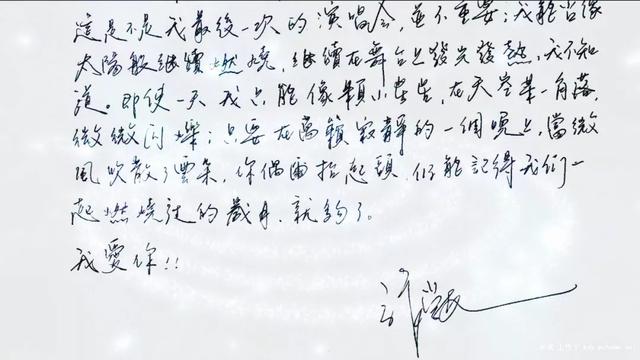 這是不是我最後一次的演唱會，並不重要；我能否像
太陽般繼續燃燒，繼續在舞台上發光發熱，我不知
道。即使一天我只能像顆小星星，在天空某一角落，
微微閃爍；只要在萬籟寂靜的一個晚上，當微
風吹散了雲朵，你偶爾抬起頭，仍能記得我們一
起燃燒過的歲月，就夠了。
我愛你!!